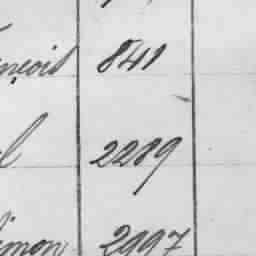 nçois 841
l 2289
imon 2997